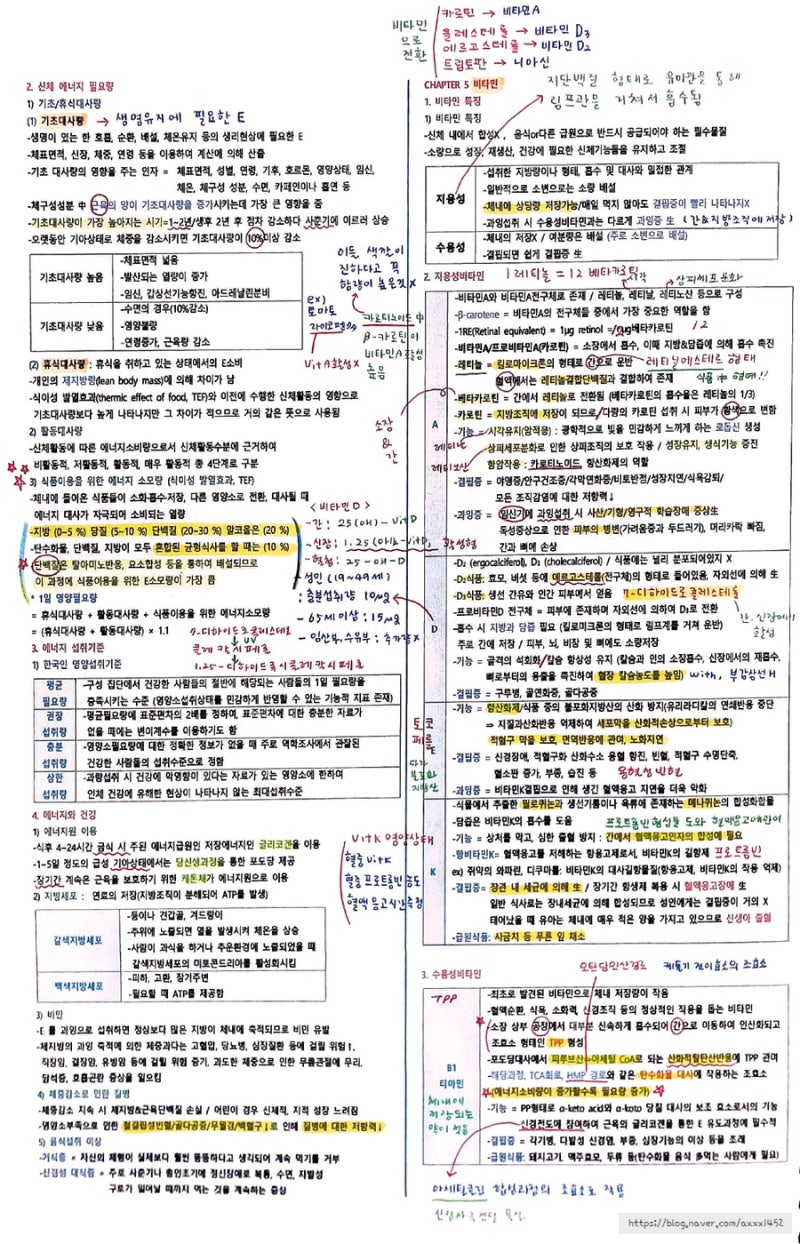 비타민
으로
전환
카로틴 → 비타민A
콜레스테롤 → 비타민 D3
에르고스테롤 → 비타민 D2
트립토판 → 니아신
2. 신체 에너지 필요량
1) 기초/휴식대사량
(1) 기초대사량 → 생명유지에 필요한 E
-생명이 있는 한 호흡, 순환, 배설, 체온유지 등의 생리현상에 필요한 E
-체표면적, 신장, 체중, 연령 등을 이용하여 계산에 의해 산출
-기초 대사량의 영향을 주는 인자 = 체표면적, 성별, 연령, 기후, 호르몬, 영양상태, 임신,
체온, 체구성 성분, 수면, 카페인이나 흡연 등
-체구성성분 中 근육의 양이 기초대사량을 증가시키는데 가장 큰 영향을 줌
-기초대사량이 가장 높아지는 시기=1~2년/생후 2년 후 점차 감소하다 사춘기에 이르러 상승
-오랫동안 기아상태로 체중을 감소시키면 기초대사량이 10%이상 감소
기초대사량 높음
-체표면적 넓음
-발산되는 열량이 증가
-임신, 갑상선기능항진, 아드레날린분비
기초대사량 낮음
-수면의 경우(10%감소)
-영양불량
-연령증가, 근육량 감소
(2) 휴식대사량 : 휴식을 취하고 있는 상태에서의 E소비
-개인의 제지방량(lean body mass)에 의해 차이가 남
-식이성 발열효과(thermic effect of food, TEF)와 이전에 수행한 신체활동의 영향으로
기초대사량보다 높게 나타나지만 그 차이가 적으므로 거의 같은 뜻으로 사용됨
2) 활동대사량
-신체활동에 따른 에너지소비량으로서 신체활동수분에 근거하여
비활동적, 저활동적, 활동적, 매우 활동적 총 4단계로 구분
3) 식품이용을 위한 에너지 소모량 (식이성 발열효과, TEF)
-체내에 들어온 식품들이 소화·흡수·저장, 다른 영양소로 전환, 대사될 때
에너지 대사가 자극되어 소비되는 열량
-지방 (0~5 %) 당질 (5~10 %) 단백질 (20~30 %) 알코올은 (20 %)
-탄수화물, 단백질, 지방이 모두 혼합된 균형식사를 할 때는 (10 %)
단백질은 탈아미노반응, 요소합성 등을 통하여 배설되므로
이 과정에 식품이용을 위한 E소모량이 가장 큼
* 1일 영양필요량
= 휴식대사량 + 활동대사량 + 식품이용을 위한 에너지소모량
= (휴식대사량 + 활동대사량) × 1.1
3. 에너지 섭취기준
1) 한국인 영양섭취기준
평균
필요량
-구성 집단에서 건강한 사람들의 절반에 해당되는 사람들의 1일 필요량을
충족시키는 수준 (영양소섭취상태를 민감하게 반영할 수 있는 기능적 지표 존재)
권장
섭취량
-평균필요량에 표준편차의 2배를 정하여, 표준편차에 대한 충분한 자료가
없을 때에는 변이계수를 이용하기도 함
충분
섭취량
-영양소필요량에 대한 정확한 정보가 없을 때 주로 역학조사에서 관찰된
건강한 사람들의 섭취수준으로 정함
상한
섭취량
-과량섭취 시 건강에 악영향이 있다는 자료가 있는 영양소에 한하여
인체 건강에 유해한 현상이 나타나지 않는 최대섭취수준
4. 에너지와 건강
1) 에너지원 이용
-식후 4~24시간 금식 시 주된 에너지급원인 저장에너지인 글리코겐을 이용
-1~5일 정도의 급성 기아상태에서는 당신생과정을 통한 포도당 제공
-장기간 계속은 근육을 보호하기 위한 케톤체가 에너지원으로 이용
2) 지방세포 : 연료의 저장(지방조직이 분해되어 ATP를 발생)
갈색지방세포
-등이나 견갑골, 겨드랑이
-추위에 노출되면 열을 발생시켜 체온을 상승
-사람이 과식을 하거나 추운환경에 노출되었을 때
갈색지방세포의 미토콘드리아를 활성화시킴
백색지방세포
-피하, 고환, 장기주변
-필요할 때 ATP를 제공함
3) 비만
-E 를 과잉으로 섭취하면 정상보다 많은 지방이 체내에 축적되므로 비만 유발
-체지방의 과잉 축적에 의한 체중과다는 고혈압, 당뇨병, 심장질환 등에 걸릴 위험↑,
직장암, 결장암, 유방암 등에 걸릴 위험 증가, 과도한 체중으로 인한 무릎관절에 무리,
담석증, 호흡곤란 증상을 일으킴
4) 체중감소로 인한 질병
-체중감소 지속 시 체지방&근육단백질 손실 / 어린이 경우 신체적, 지적 성장 느려짐
-영양소부족으로 인한 철결핍성빈혈/골다공증/무월경/백혈구↓로 인해 질병에 대한 저항력↓
5) 음식섭취 이상
-거식증 = 자신의 체형이 실제보다 훨씬 뚱뚱하다고 생각되어 계속 먹기를 거부
-신경성 대식증 = 주로 사춘기나 흥인초기에 정신장애로 복통, 수면, 자발성
구토가 일어날 때까지 먹는 것을 계속하는 증상
이들 색깔이
진하다고 꼭
함량이 높은것 X
ex)
토마토
라이코펜
VitA활성 X
카로티노이드 中
β-카로틴이
비타민A활성
높음
소장
&
간
<비타민D>
-간: 25(OH)-VitD
-신장: 1.25(OH)2-VitD, 활성형
-혈청: 25-OH-D
-성인 (19~49세)
: 충분섭취량 10㎍
-65세이상 : 15㎍
-임산부.수유부 : 추가량 X
7-디하이드로콜레스테롤
↓UV
콜레칼시페롤
↓
1.25-디하이드록시콜레칼시페롤
VitK 영양상태
혈중 VitK
혈중 프로트롬빈 농도
혈액 응고시간측정
CHAPTER 5 비타민
지단백질 형태로 유미관을 통해
림프관을 거쳐서 흡수됨
1. 비타민 특징
1) 비타민 특징
-신체 내에서 합성X , 음식or다른 급원으로 반드시 공급되어야 하는 필수물질
-소량으로 성장, 재생산, 건강에 필요한 신체기능들을 유지하고 조절
지용성
-섭취한 지방량이나 형태, 흡수 및 대사와 밀접한 관계
-일반적으로 소변으로는 소량 배설
-체내에 상당량 저장가능/매일 먹지 않아도 결핍증이 빨리 나타나지X
-과잉섭취 시 수용성비타민과는 다르게 과잉증 生 (간&지방조직에저장)
수용성
-체내의 저장X / 여분량은 배설 (주로 소변으로 배설)
-결핍되면 쉽게 결핍증 生
2. 지용성비타민
1 레티놀 = 12 베타카로틴
시각
상피세포 분화
A
-비타민A와 비타민A전구체로 존재 / 레티놀, 레티날, 레티노산 등으로 구성
-β-carotene = 비타민A의 전구체들 중에서 가장 중요한 역할을 함
-1RE(Retinal equivalent) = 1㎍ retinol = ㎍베타카로틴 12
-비타민A/프로비타민A(카로틴) = 소장에서 흡수, 이때 지방&담즙에 의해 흡수 촉진
-레티놀 = 킬로마이크론의 형태로 간으로 운반
레티닐에스테르 형태
식품 中 형태!!
혈액에서는 레티놀결합단백질과 결합하여 존재
-베타카로틴 = 간에서 레티놀로 전환됨 (베타카로틴의 흡수율은 레티놀의 1/3)
-카로틴 = 지방조직에 저장이 되므로/다량의 카로틴 섭취 시 피부가 황색으로 변함
레티날
-기능 = 시각유지(암적응) : 광학적으로 빛을 민감하게 느끼게 하는 로돕신 생성
레티노산
상피세포분화로 인한 상피조직의 보호 작용 / 성장유지, 생식기능 증진
항암작용 : 카로티노이드, 항산화제의 역할
-결핍증 = 야맹증/안구건조증/각막연화증/비토반점/성장지연/식욕감퇴/
모든 조직감염에 대한 저항력↓
-과잉증 = 임신기에 과잉섭취 시 사산/기형/영구적 학습장애 증상生
독성증상으로 인한 피부의 병변(가려움증과 두드러기), 머리카락 빠짐,
간과 뼈에 손상
D
-D₂ (ergocalciferol), D₃ (cholecalciferol) / 식품에는 널리 분포되어있지 X
-D₂식품: 효모, 버섯 등에 에르고스테롤(전구체)의 형태로 들어있음, 자외선에 의해 生
-D₃식품: 생선 간유와 인간 피부에서 얻음 7-디하이드로콜레스테롤
-프로비타민D 전구체 = 피부에 존재하며 자외선에 의하여 D₃로 전환
간, 신장에서
활성
-흡수 시 지방과 담즙 필요 (킬로미크론의 형태로 림프계를 거쳐 운반)
주로 간에 저장 / 피부, 뇌, 비장 및 뼈에도 소량저장
-기능 = 골격의 석회화/칼슘 항상성 유지 (칼슘과 인의 소장흡수, 신장에서의 재흡수,
뼈로부터의 용출을 촉진하여 혈장 칼슘농도를 높임) with, 부갑상선H
-결핍증 = 구루병, 골연화증, 골다공증
토코
페롤
E
다가
불포화
지방산
-기능 = 항산화제/식품 중의 불포화지방산의 산화 방지 (유리라디칼의 연쇄반응 중단
⇒ 지질과산화반응 억제하여 세포막을 산화적손상으로부터 보호)
적혈구 막을 보호, 면역반응에 관여, 노화지연
-결핍증 = 신경장애, 적혈구화 산화수소 용혈 항진, 빈혈, 적혈구 수명단축,
혈소판 증가, 부종, 습진 등 용혈성 빈혈
-과잉증 = 비타민K결핍으로 인해 생긴 혈액응고 지연을 더욱 악화
K
-식물에서 추출한 필로퀴논과 생선기름이나 육류에 존재하는 메나퀴논의 합성화합물
-담즙은 비타민K의 흡수를 도움 프로트롬빈형성을 도와 혈액응고에관여
-기능 = 상처를 막고, 심한 출혈 방지 : 간에서 혈액응고인자의 합성에 필요
-항비타민K= 혈액응고를 저해하는 항응고제로서, 비타민K의 길항제 프로트롬빈
ex) 쥐약의 와파린, 디쿠마롤: 비타민K의 대사길항물질(항응고제, 비타민K의 작용 억제)
-결핍증= 장관 내 세균에 의해 生 / 장기간 항생제 복용 시 혈액응고장애 生
일반 식사로는 장내세균에 의해 합성되므로 성인에게는 결핍증이 거의 X
태어났을 때 유아는 체내에 매우 적은 양을 가지고 있으므로 신생아 출혈
-급원식품: 시금치 등 푸른 잎 채소
3. 수용성비타민
오탄당인산경로 케톨기 전이효소의 조효소
TPP
B1
티아민
체내에
저장되는
양이 적음
-최초로 발견된 비타민으로 체내 저장량이 작음
-혈액순환, 식욕, 소화력, 신경조직 등의 정상적인 작용을 돕는 비타민
-소장 상부 공장에서 대부분 신속하게 흡수되어 간으로 이동하여 인산화되고
조효소 형태인 TPP 형성
-포도당대사에서 피루브산→아세틸 CoA로 되는 산화적탈탄산반응에 TPP 관여
-해당과정, TCA회로, HMP 경로와 같은 탄수화물 대사에 작용하는 조효소
(에너지소비량이 증가할수록 필요량 증가)
-기능 = PP형태로 α-keto acid와 α-koto 당질 대사의 보조 효소로서의 기능
신경전도에 참여하여 근육의 글리코겐을 통한 E 유도과정에 필수적
-결핍증 = 각기병, 다발성 신경염, 부종, 심장기능의 이상 등을 초래
-급원식품: 돼지고기, 맥주효모, 두류 등(탄수화물 음식 多먹는 사람에게 필요)
아세틸콜린 합성과정의 조효소로 작용
https://blog.naver.com/axxx1452